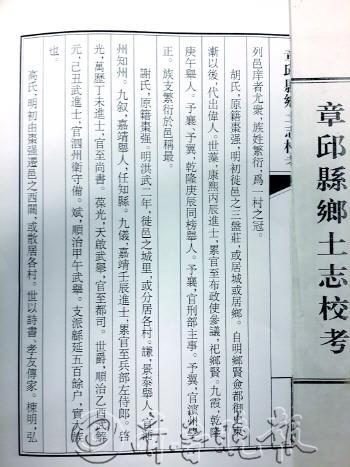 章邱縣鄉土志校考
章邱縣鄉土志校考
列邑庠者尤衆，族姓繁衍，爲一村之冠。
胡氏，原籍棗强，明初徙邑之三盤莊，或居城或居鄉。自明鄉賢僉都御史東
漸以後，代出偉人。世藻，康熙丙辰進士，累官至布政使參議，祀鄉賢。九霞，乾隆
庚午舉人。予襄、予翼，乾隆庚辰同榜舉人。予襄，官刑部主事。予翼，官濱州學
正。族支繁衍於邑稱最。
謝氏，原籍棗强。明洪武二年，徙邑之城里，或分居各村。謙，景泰舉人，官
州知州。九叙，嘉靖舉人，任知縣。九儀，嘉靖壬辰進士，累官至兵部左侍郎。啓
光，萬歷丁未進士，官至尚書。葆光，天啟武舉，官至都司。世爵，順治乙酉武解
元，己丑武進士，官泗州衛守備。斌，順治甲午武舉。支派緜延五百餘户，實大族
也。
高氏，明初由棗强遷邑之西關，或散居各村。世以詩書、孝友傳家。棟明，弘
齊魯晚報